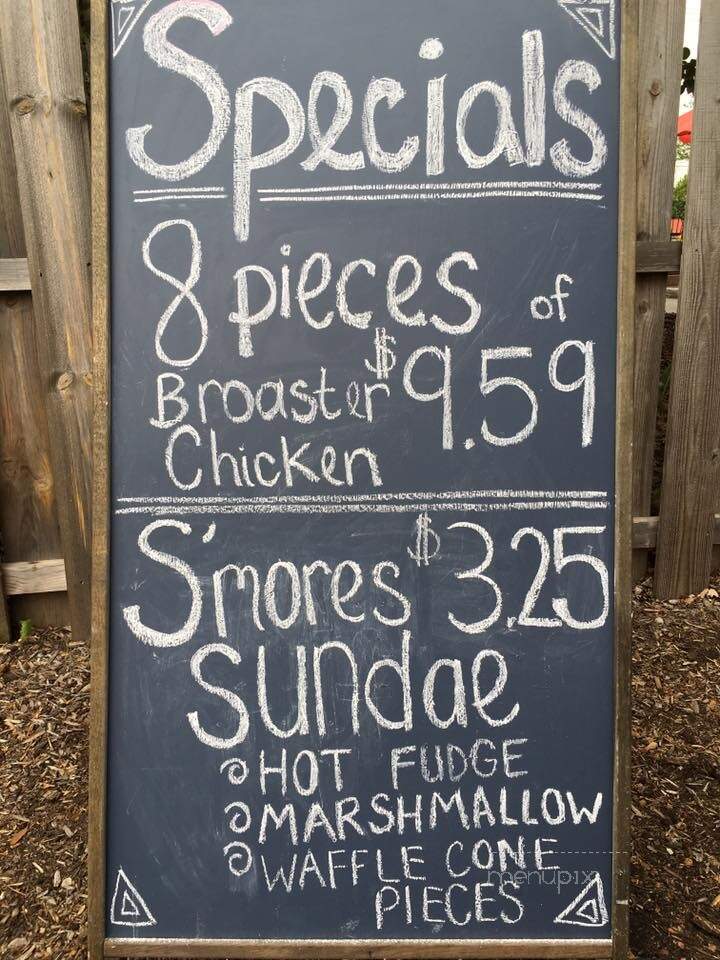 Specials
8 pieces of
Broaster $9.59
Chicken
S'mores $3.25
Sundae
HOT FUDGE
MARSHMALLOW
WAFFLE CONE
menupix
PIECES